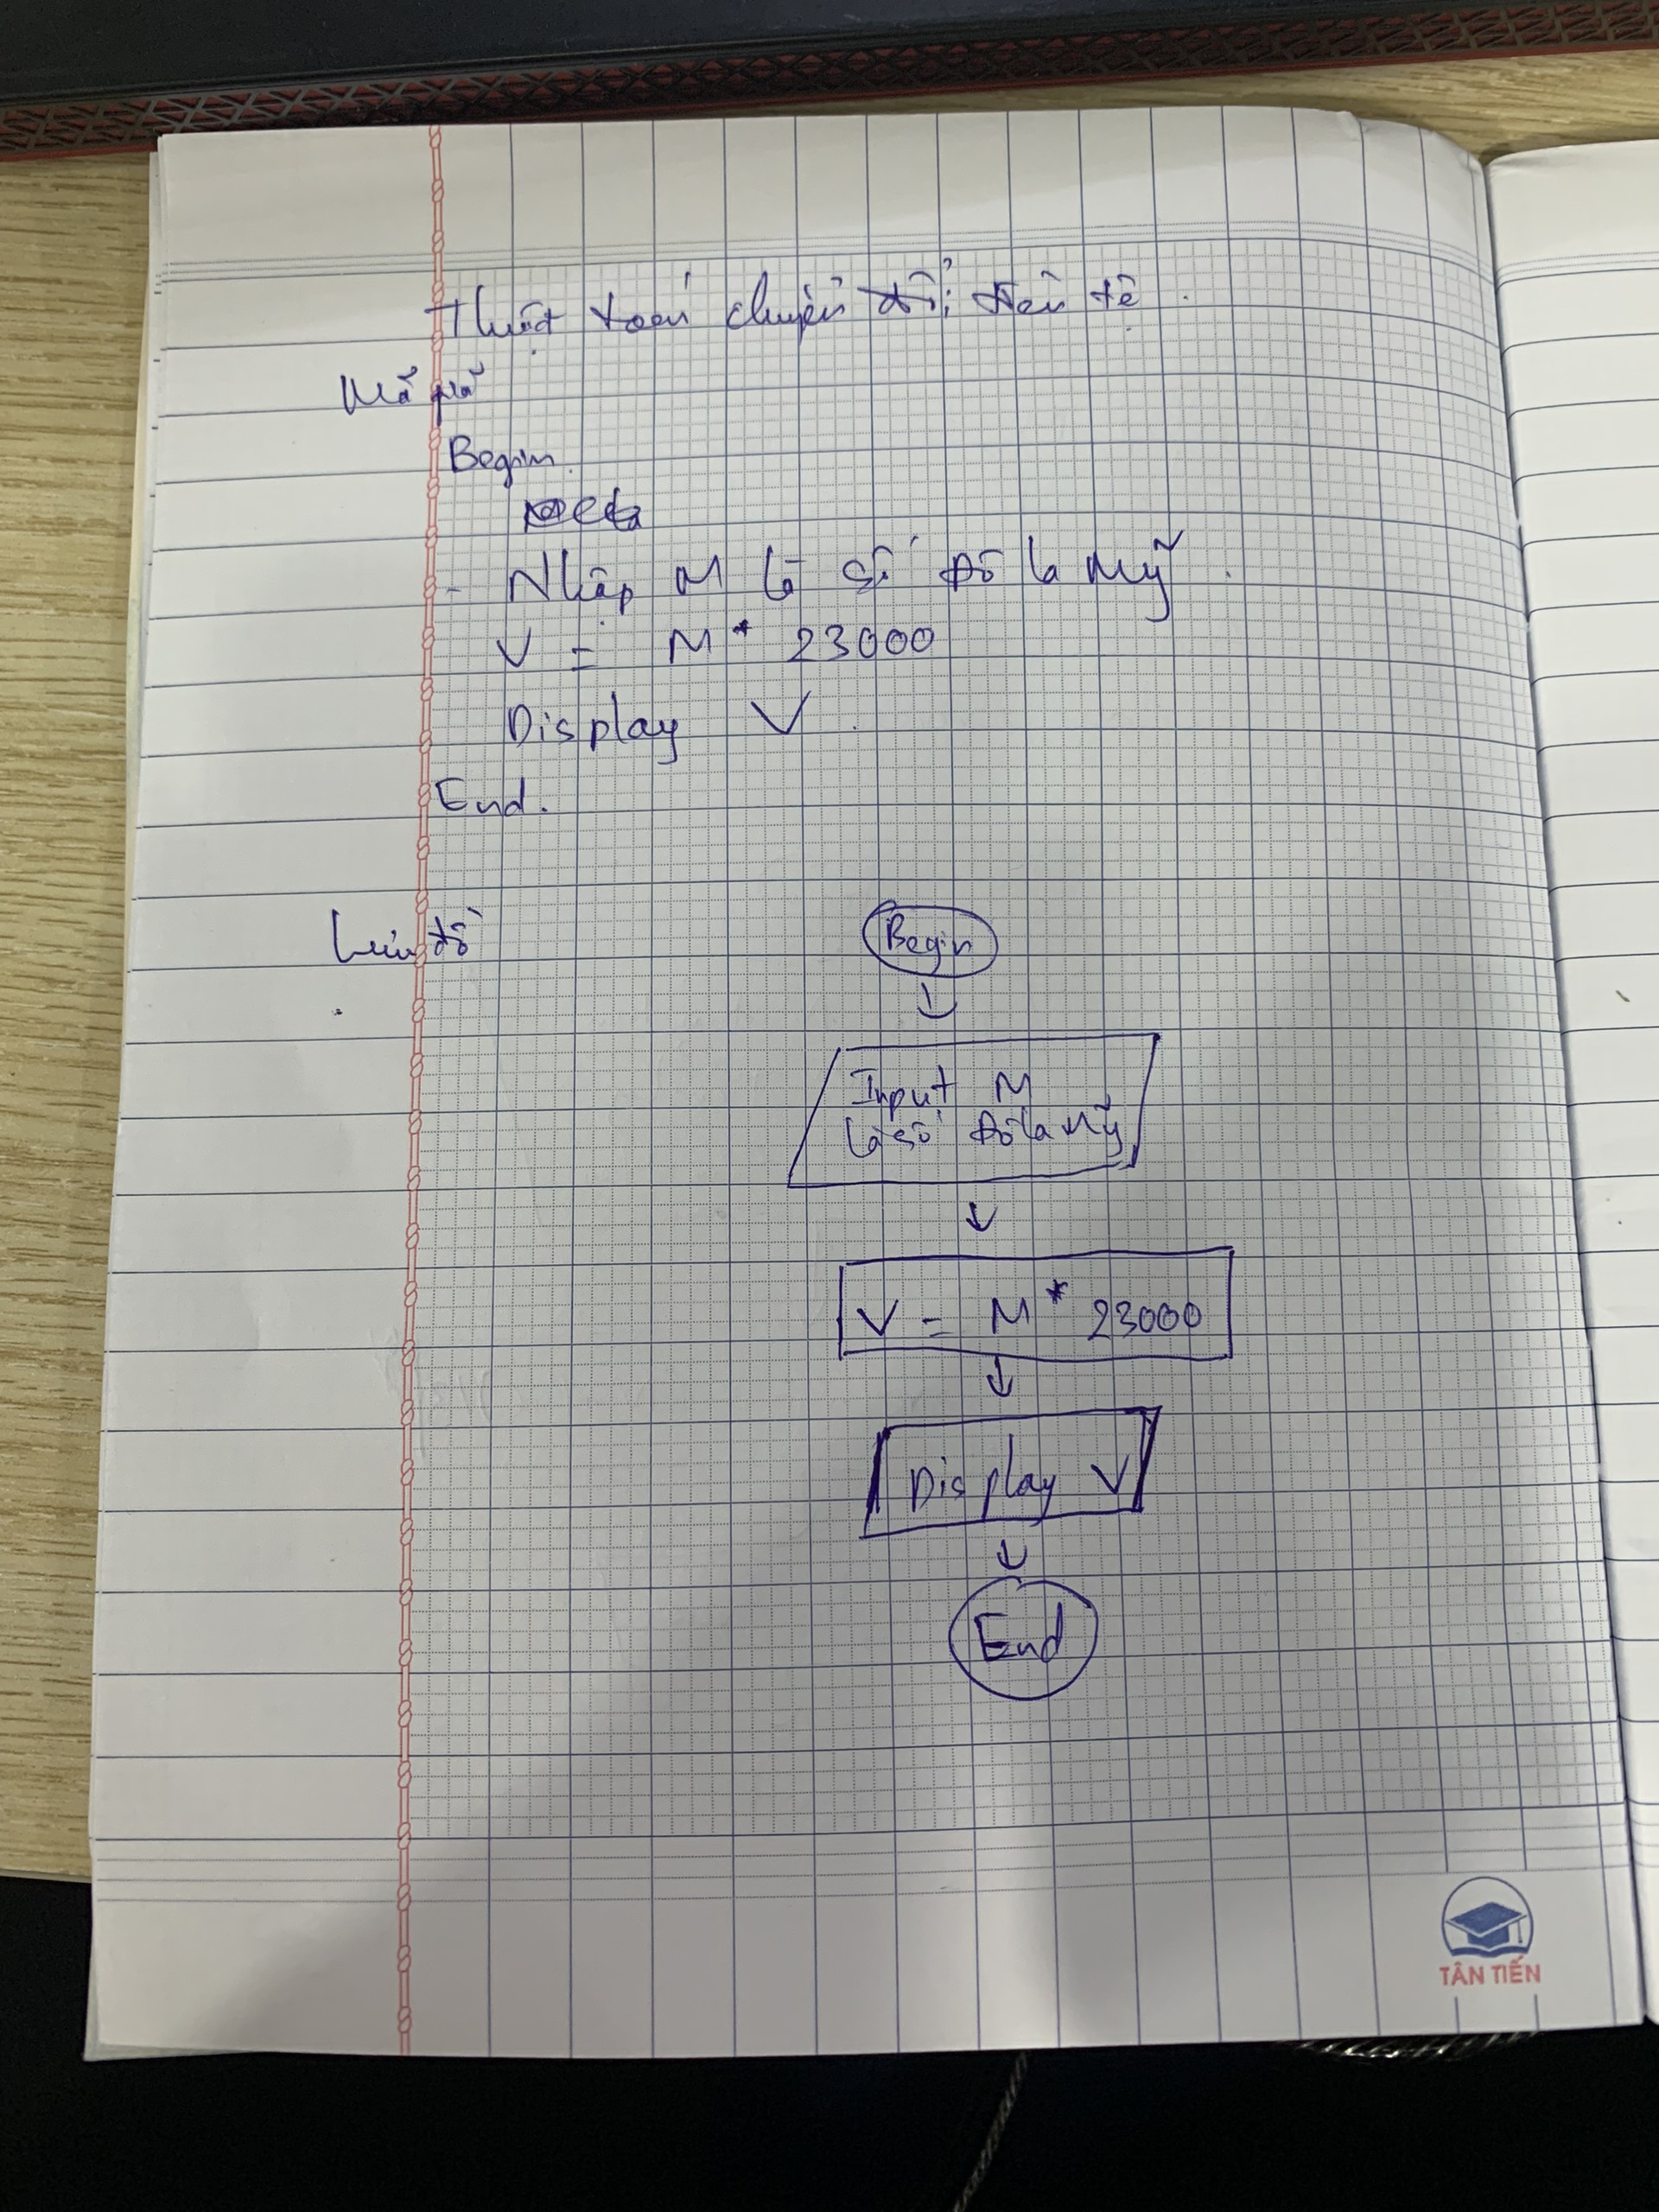 Thuật toán chuyển đổi tiền tệ.
Mã giả
Begin.
- Nhập M là số Đô la Mỹ.
V = M * 23000
Display V.
End.
Lưu đồ
Begin
Input M
là số Đô la Mỹ
V = M * 23000
Display V
End
TÂN TIẾN